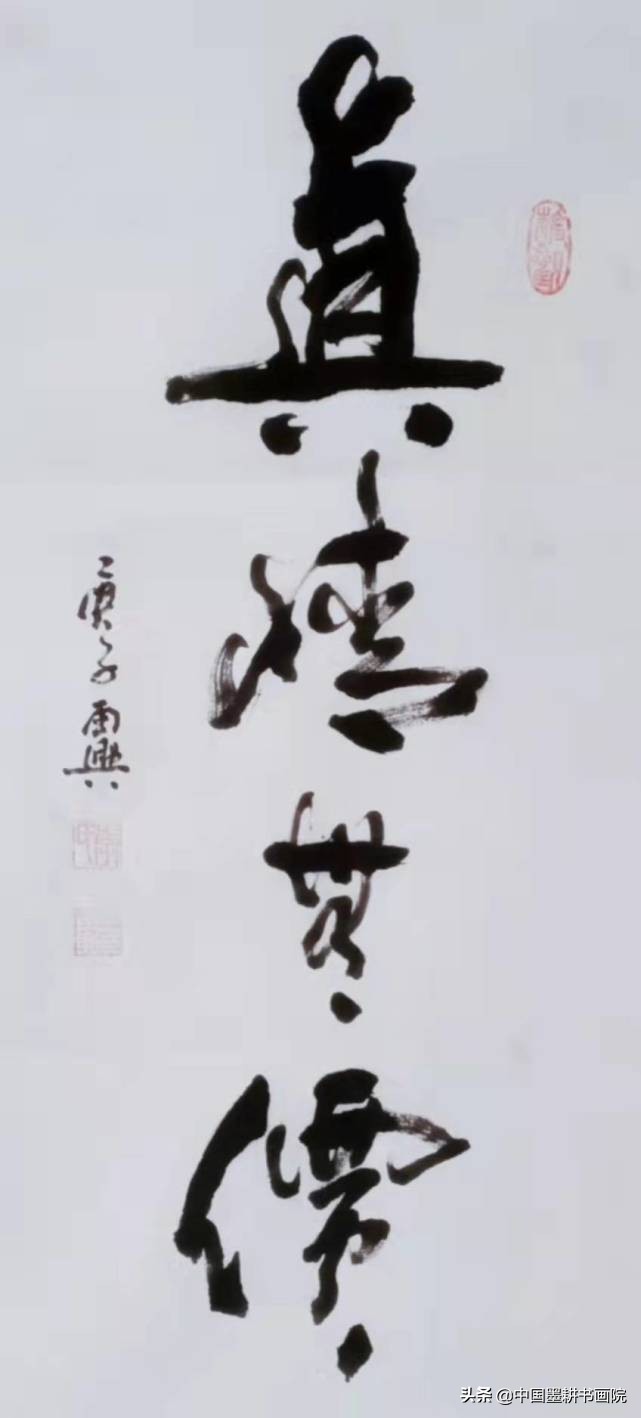 真情無價
庚子雨興
头条 @中国墨耕书画院